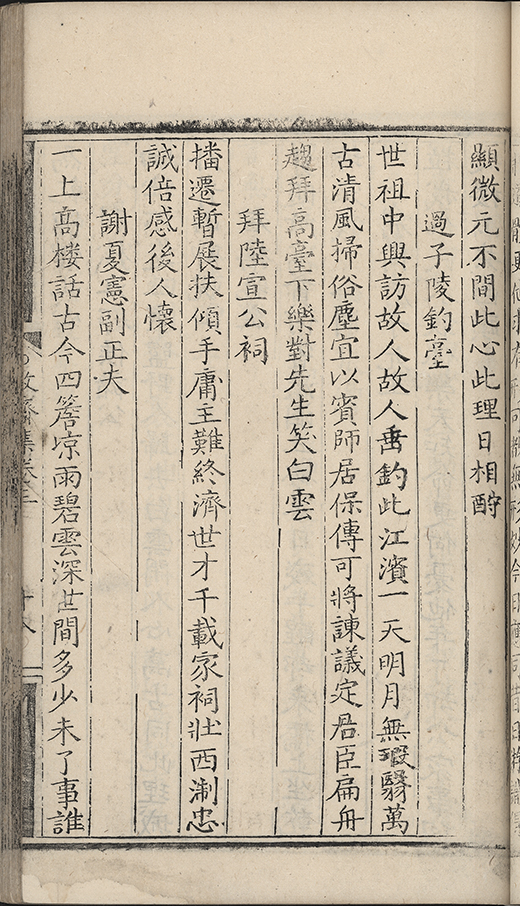 顯微元不間此心此理日相酧
過子陵釣臺
世祖中興訪故人故人垂釣此江濱一天明月無瑕翳萬
古清風掃俗塵宜以賓師居保傅可將諫議定君臣扁舟
趨拜高臺下樂對先生笑白雲
拜陸宣公祠
播遷暫展扶傾手庸主難終濟世才千載家祠壯西淛忠
誠倍感後人懷
謝夏憲副正夫
一上高樓話古今四簷凉雨碧雲深世間多少未了事誰